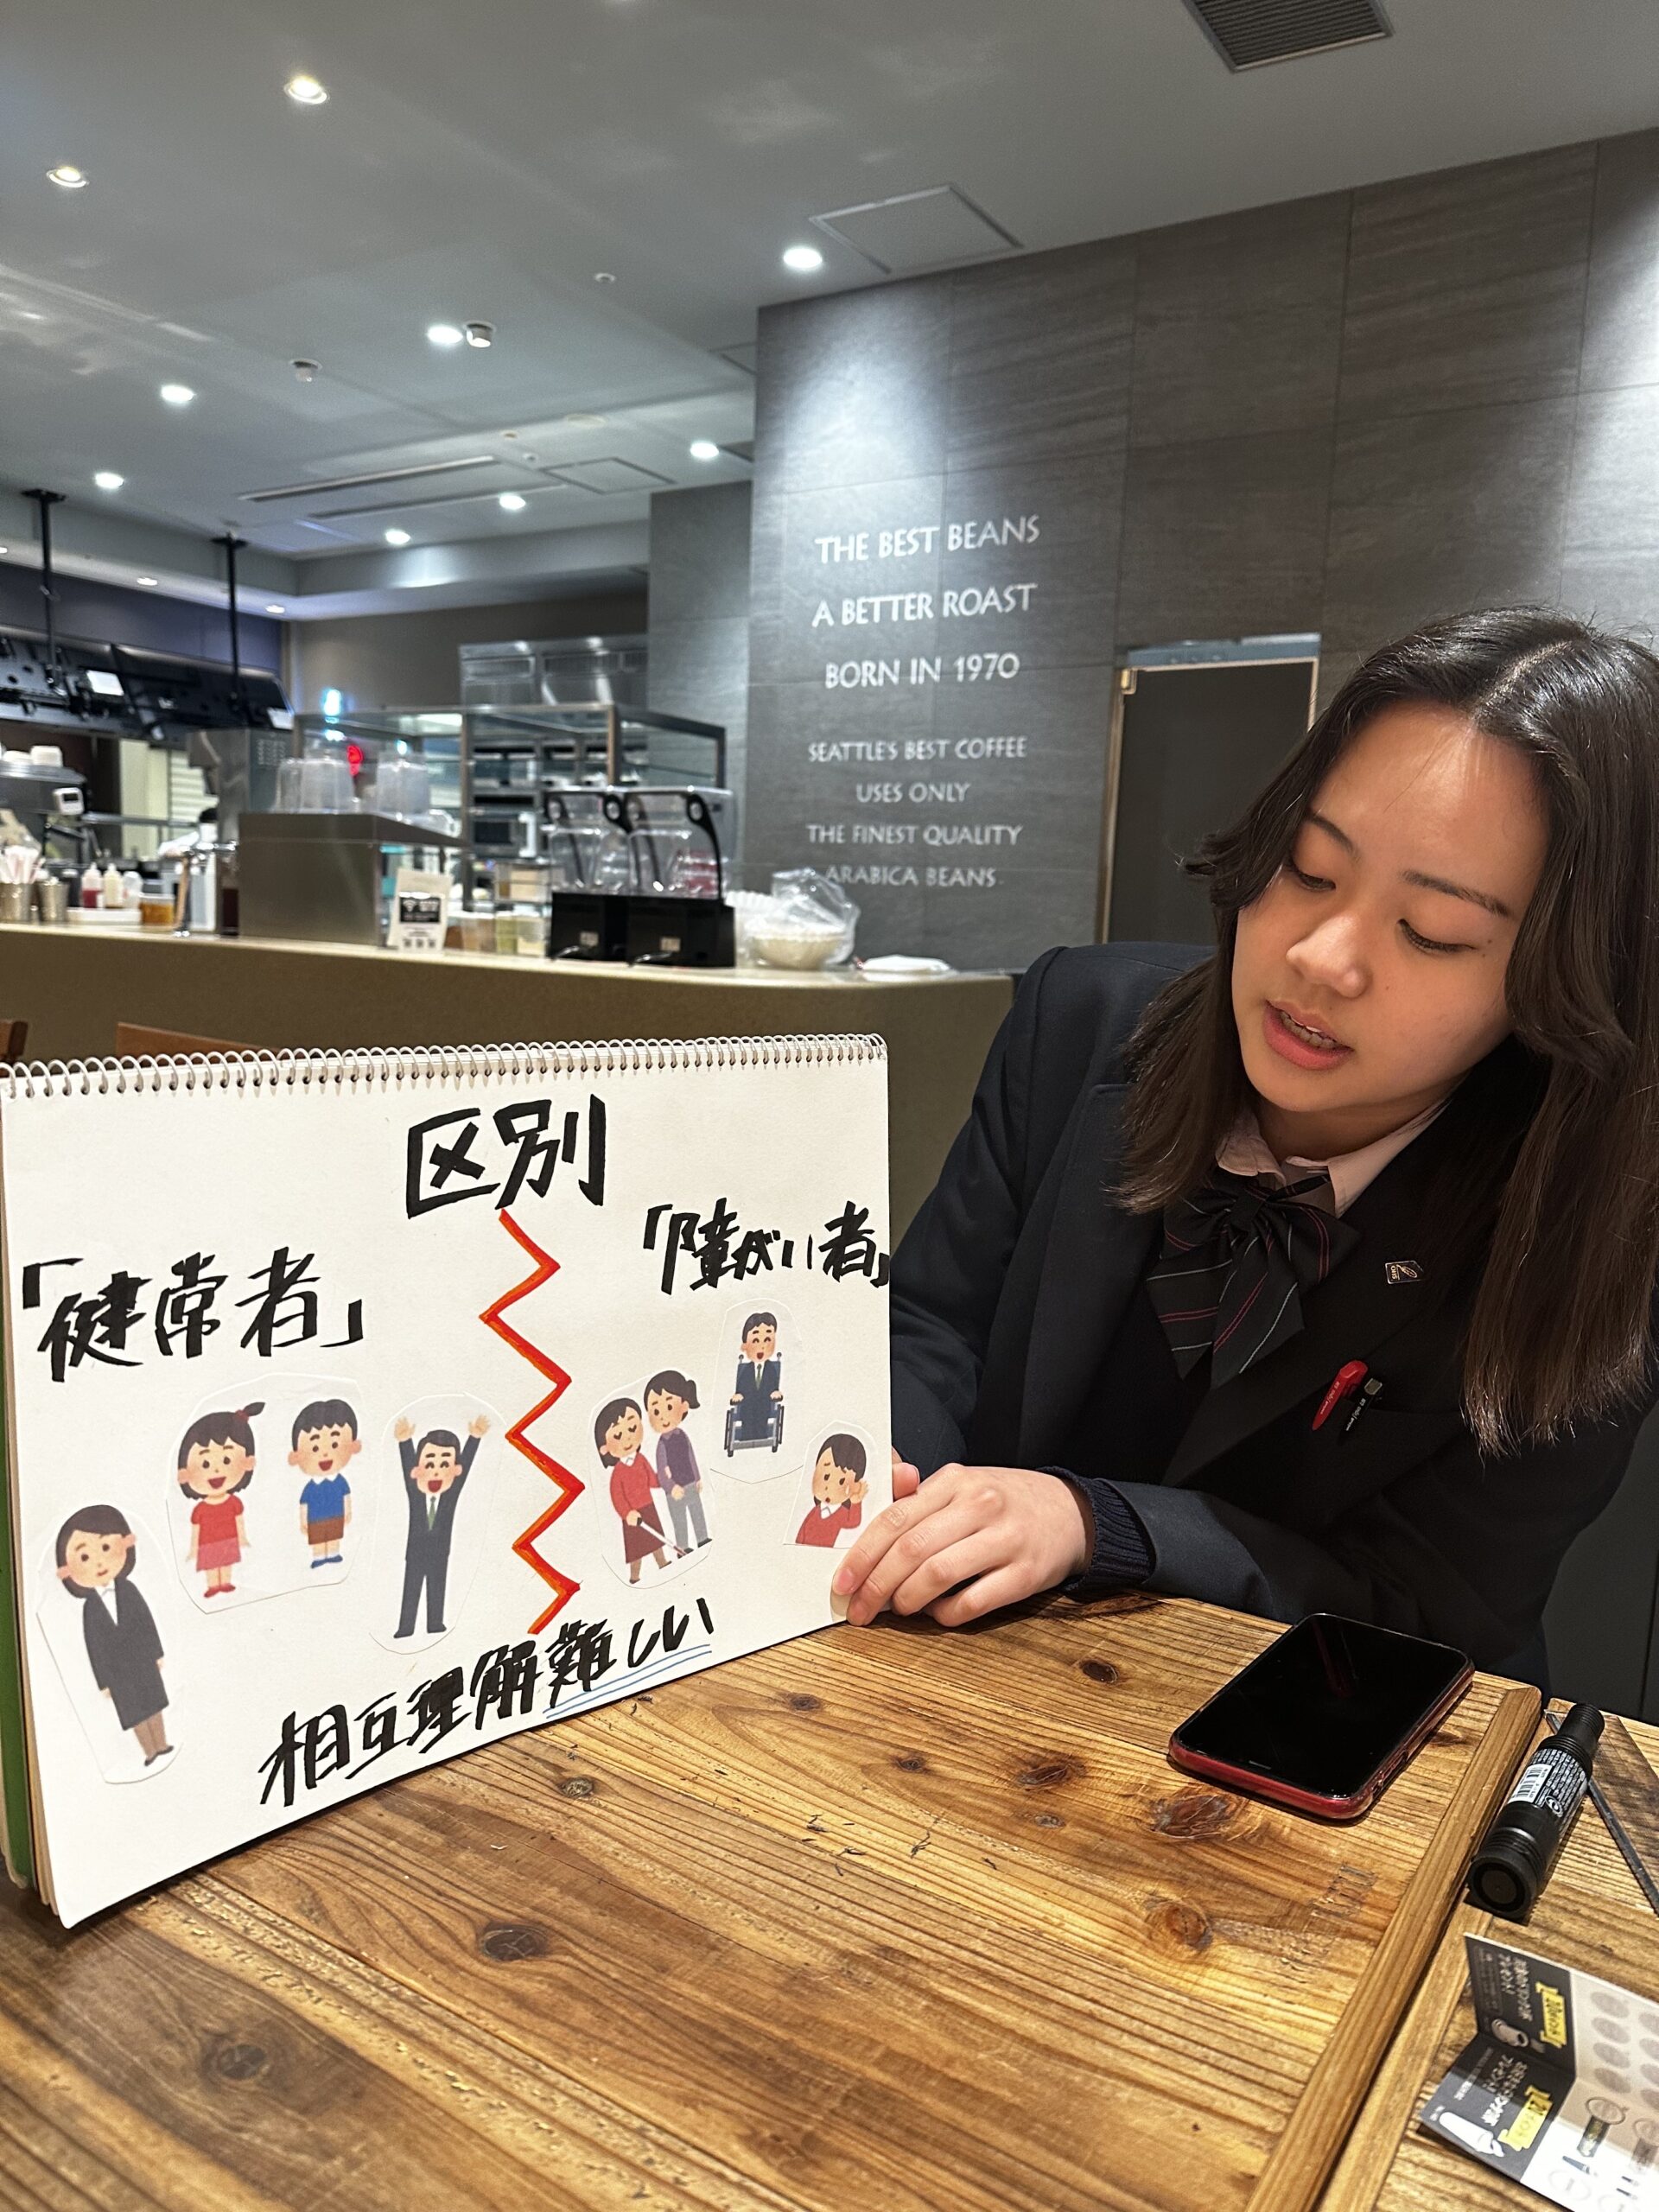 THE BEST BEANS
A BETTER ROAST
BORN IN 1970
SEATTLE'S BEST COFFEE
USES ONLY
THE FINEST QUALITY
ARABICA BEANS
区別
「健常者」
「障がい者」
相互理解難しい